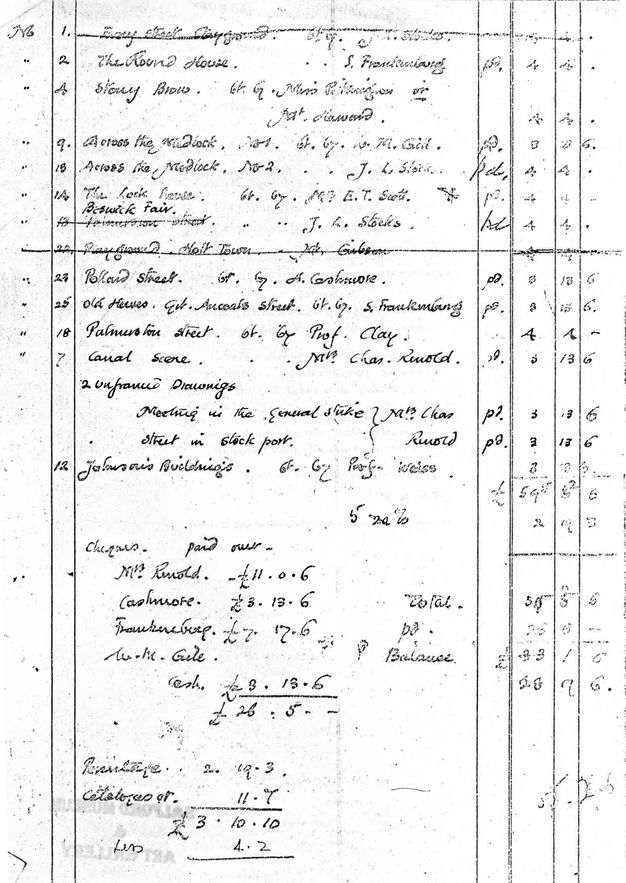 No 1. Street Playground. bt by. J. L. Stocks. 4 4 .
" 2 The Round House. . . S. Frankenburg pd. 4 4 .
" 4 Stoney Brow. bt. by. Miss Pilkington or
Mr. Haward. 4 4 .
" 9. Across the Medlock. No 1. bt. by. W. M. Gill. pd. 3 3 6.
" 13 Across the Medlock. No 2. . . J. L. Stocks. pd. 4 4 .
" 14 The Lock house. bt. by. Mrs E. T. Scott. pd. 4 4 -
Beswick Fair.
" 13 Palmerston Street. " .. J. L. Stocks. pd 4 4 .
22. Playground. Holt Town. .. Mr. Gibson 4 4
" 23 Pollard Street. bt. by. H. Cashmore. pd. 3 13 6
" 25 Old Houses. Gt. Ancoats Street. bt. by. S. Frankenburg pd. 3 13 6.
" 18 Palmerston Street. bt. by Prof. Clay. 4 4 -
" 7 Canal Scene. . . Mrs Chas. Renold. pd. 3 13 6
2 unframed Drawings
Meeting in the General Strike } Mrs Chas pd. 3 13 6
Street in Stockport. } Renold pd. 3 13 6
12 Johnson's Buildings. bt. by Prof. Weiss 3 3
£ 6
2 9 3
Cheques. paid over -
Mrs Renold. - £11. 0. 6
Cashmore. £3. 13. 6 Total. 6
Frankenburg. £7. 17. 6 pd. 26 5 -
W. M. Gill. ? Balance. £ 33 1 6
Cash. £3. 13. 6 28 7 6.
£ 26. 5 - -
Percentage. . 2. 19. 3.
Catalogues 11. 7
£ 3. 10. 10
Less 4. 2
SALFORD MUSEUM
&
ART GALLERY